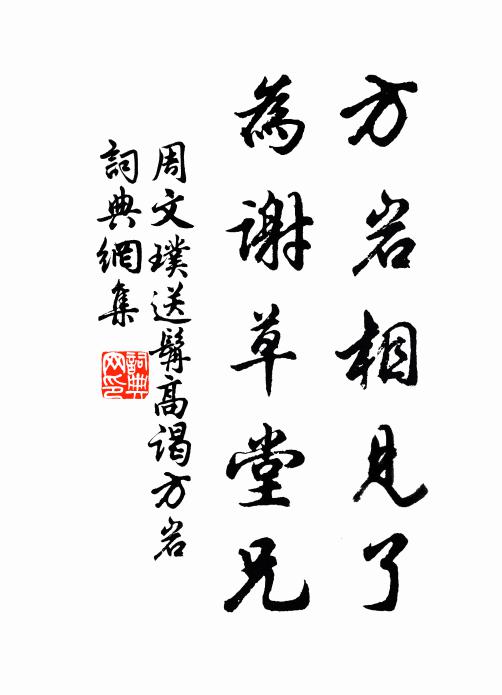 方岩相見了
為謝草堂兄
周文璞送髯高謁方岩
詞典網集
詞典
网印